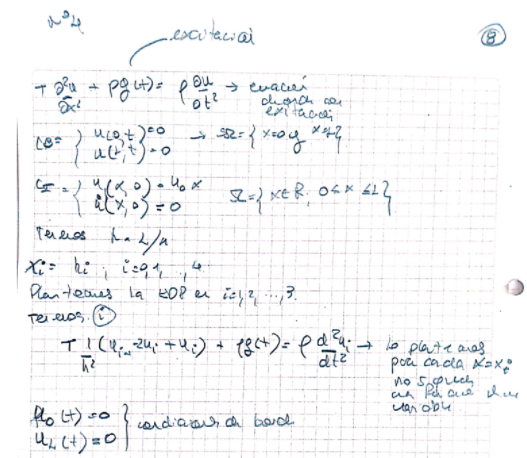 Nº4
excitación
⑧
T ∂²u/∂x² + ρg(t) = ρ ∂u/∂t² → ecuación
de onda con
excitación
CB = { u(0,t)=0
u(L,t)=0
→ ∂Ω = { x=0 y x=L }
CI = { u(x,0) = u₀ x
u̇(x,0) = 0
Ω = { x∈R, 0≤x≤L }
Tenemos h = L/4
xi = hi, i=0,1, .., 4
Planteamos la EDP en i=1,2, ...,3.
Tenemos ⓘ
T 1/h² (ui-1 - 2ui + ui) + ρg(t) = ρ d²ui/dt² → lo planteamos
para cada x=xi
no s queda
una variable
u0(t)=0
uL(t)=0 } condiciones de borde